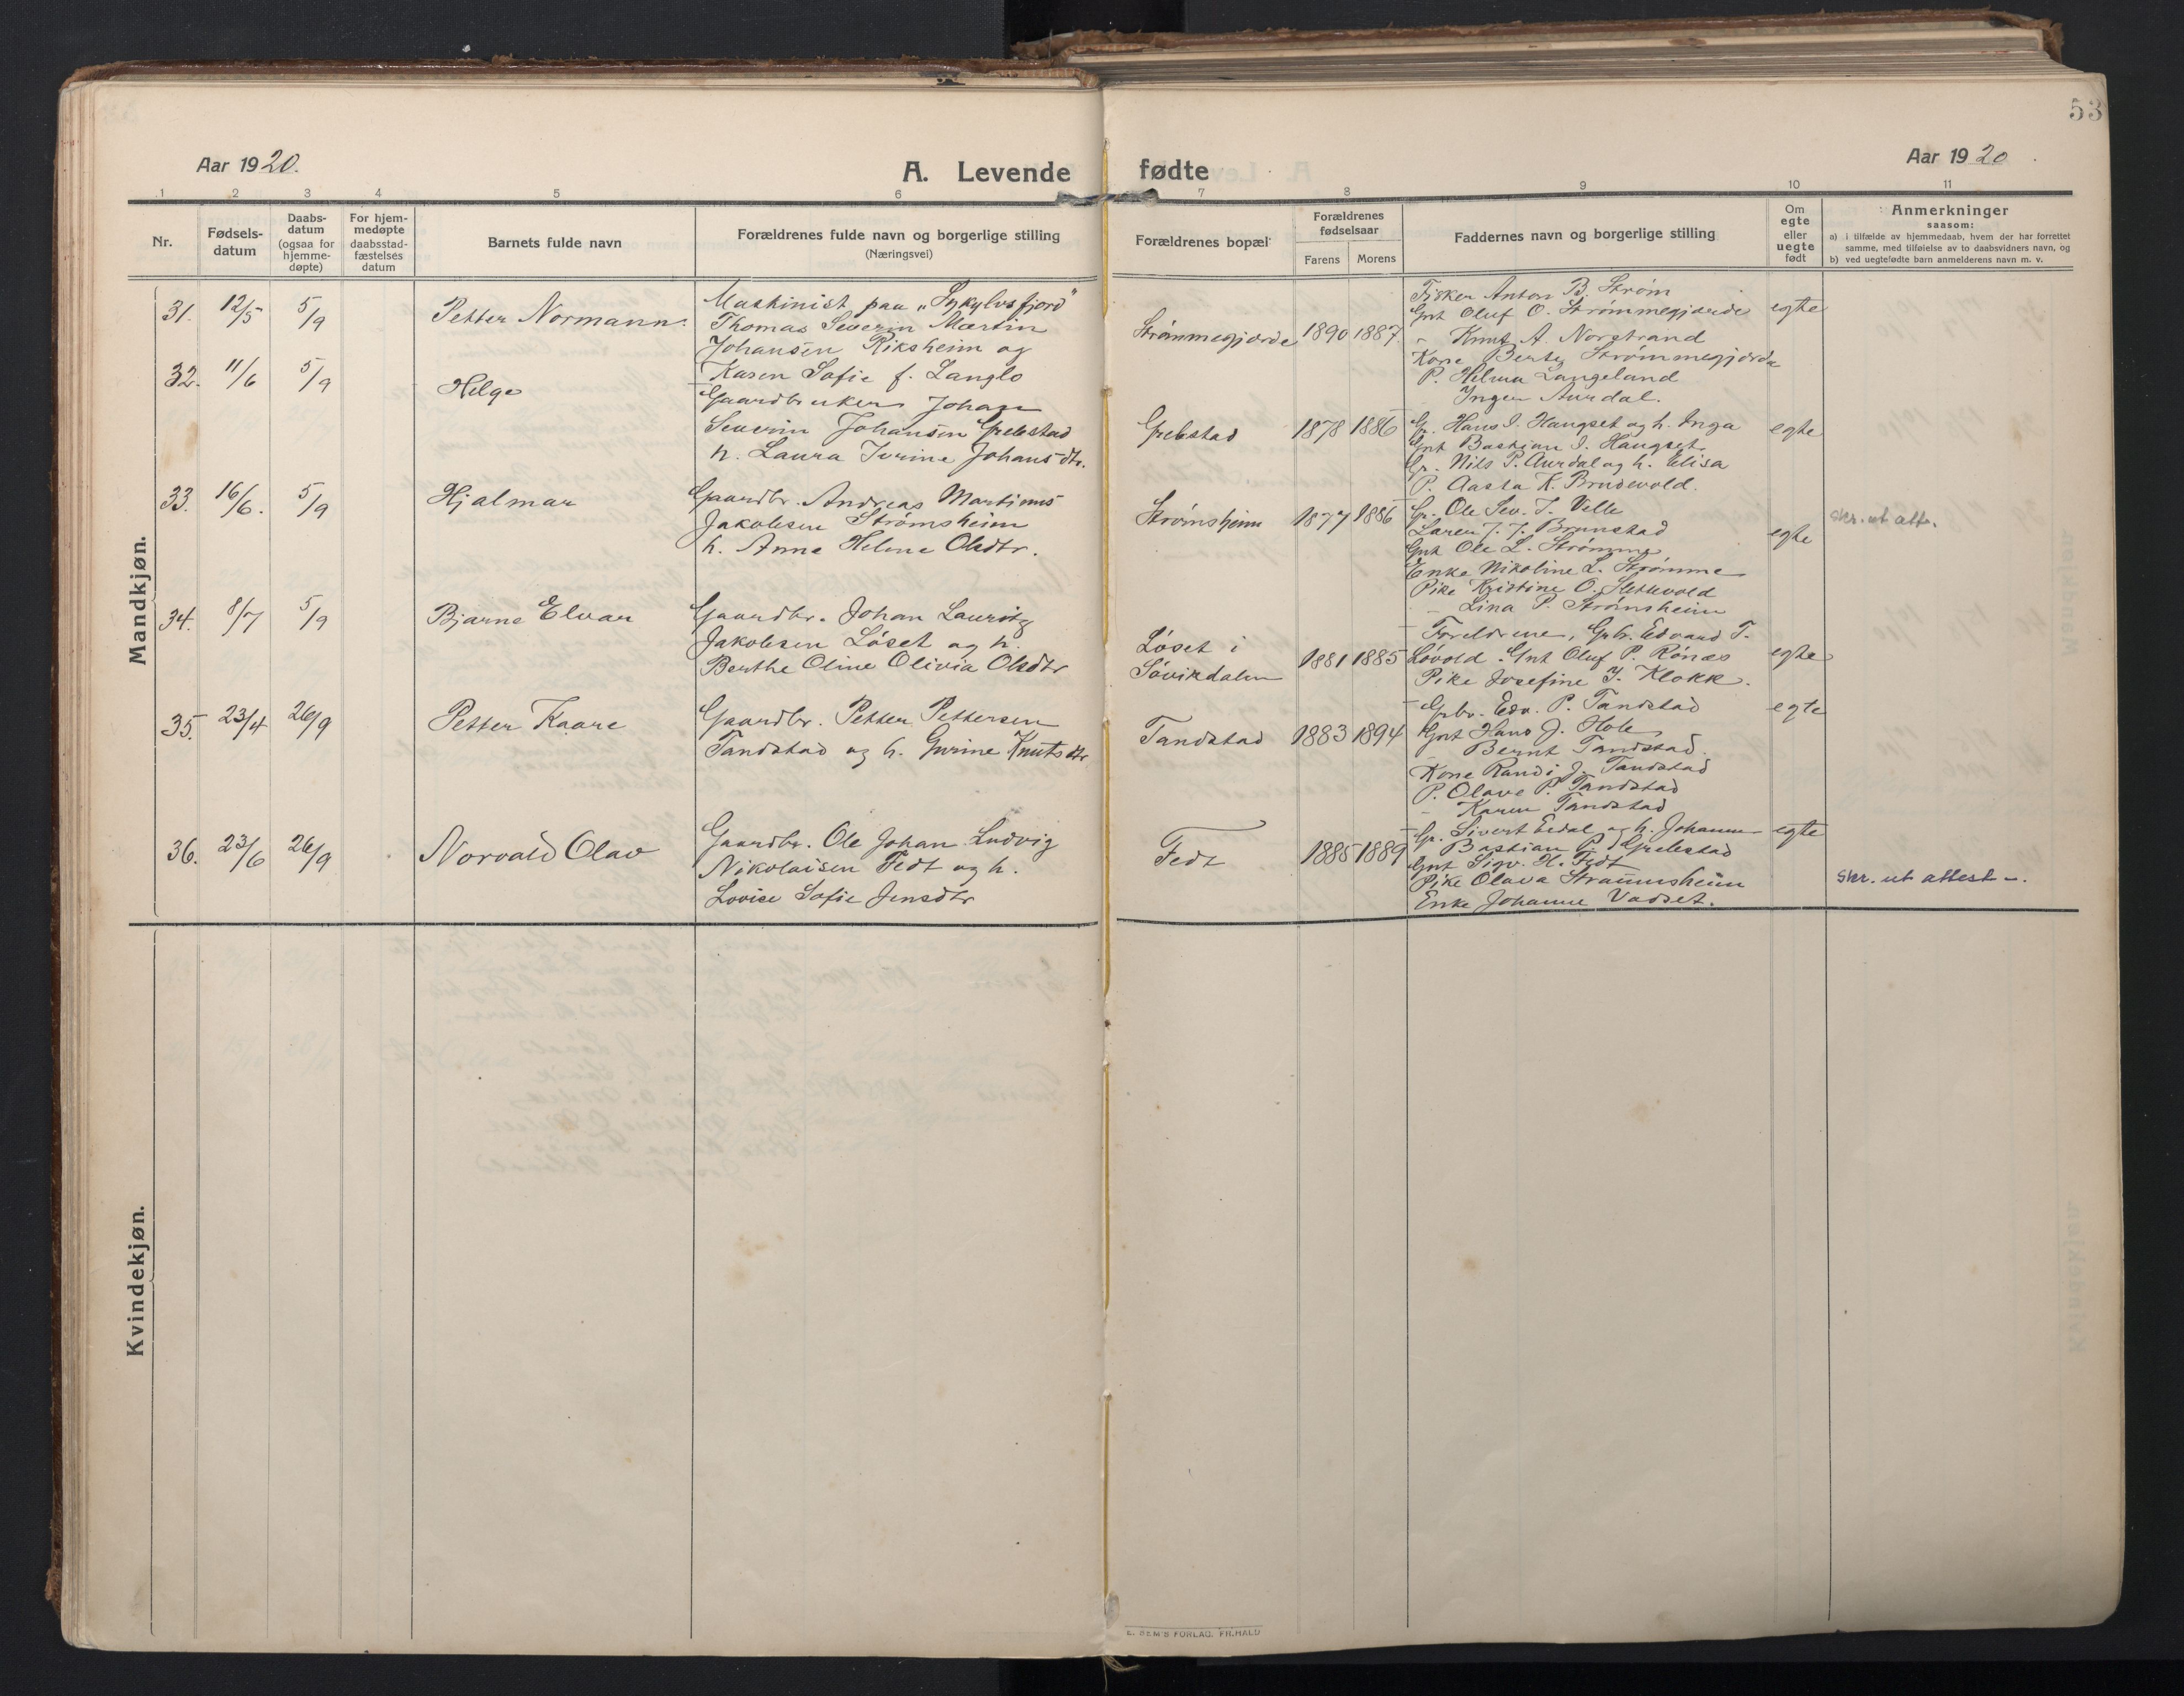 53
Aar 1920.
A. Levende fødte
Aar 1920.
1 2 3 4 5 6 7 8 9 10 11
Nr.
Fødsels-
datum
Daabs-
datum
(ogsaa for
hjemme-
døpte)
For hjem-
medøpte
daabsstad-
fæstelses
datum
Barnets fulde navn
Forældrenes fulde navn og borgerlige stilling
(Næringsvei)
Forældrenes bopæl
Forældrenes
fødselsaar
Farens Morens
Faddernes navn og borgerlige stilling
Om
egte
eller
uegte
født
Anmerkninger
saasom:
a) i tilfælde av hjemmedaab, hvem der har forrettet
samme, med tilføielse av to daabsvidners navn, og
b) ved uegtefødte barn anmelderens navn m. v.
Mandkjøn.
31. 12/5 5/9 Petter Normann.
Maskinist paa „Sykylvsfjord"
Thomas Severin Martin
Johansen Riksheim og
Karen Sofie f. Langlo
Strømmegjærde 1890 1887.
Fisker Anton B. Strøm
Gnt Oluf O. Strømmegjærde
- Knut A. Norstrand
Kone Berte Strømmegjerde
P. Helma Langeland
Inger Aurdal.
egte
32. 11/6 5/9 Helge
Gaardbruker Johan
Severin Johansen Grebstad
h. Laura Ivrine Johansdtr.
Grebstad 1878 1886
Gr. Hans I. Haugset og h. Inga
Gnt Bastian I. Haugset
Gr. Nils P. Aurdal og h. Elisa
P. Aasta K. Brudevold.
egte
33. 16/6. 5/9 Hjalmar
Gaardbr. Andreas Martinus
Jakobsen Strømsheim
h. Anne Helene Olsdtr.
Strømsheim 1877 1886
Gr. Ole Sev. I. Velle
Laren J. J. Brunstad
Gnt Ole L. Strømme
Enke Nikoline L. Strømme
Pike Kristine O.
- Lina P. Strømsheim
egte
skr. ut att.
34. 8/7 5/9 Bjarne Elvar
Gaardbr. Johan Lauritz
Jakobsen Løset og h.
Berthe Oline Olivia Olsdtr
Løset i
Søvikdalen
1881 1885
Foreldrene, Grbr. Edvard T.
Løvold. Gnt Oluf P. Rónæs
Pike Josefine J. Klokk.
egte
35. 23/4 26/9 Petter Kaare
Gaardbr. Petter Pettersen
Tandstad og h. Gurine Knutsdtr
Tandstad 1883 1894
Grbr. Edv. P. Tandstad
Gnt Hans J. Hole
- Bernt Tandstad.
Kone Randi J. Tandstad
P. Olave P. Tandstad
- Karen Tandstad
egte
36. 23/6 26/9 Norvald Olav
Gaardbr. Ole Johan Ludvig
Nikolaisen Fedt og h.
Lovise Sofie Jensdtr
Fedt 1885 1889
Gr. Sivert Eidal og h. Johanne
- Bastian P. Grebstad
Gnt Sigv. H. Fedt
Pike Olava Straumsheim
Enke Johanne Vadset.
egte
skr. ut attest -.
Kvindekjøn.
E. SEM'S FORLAG, FR.HALD